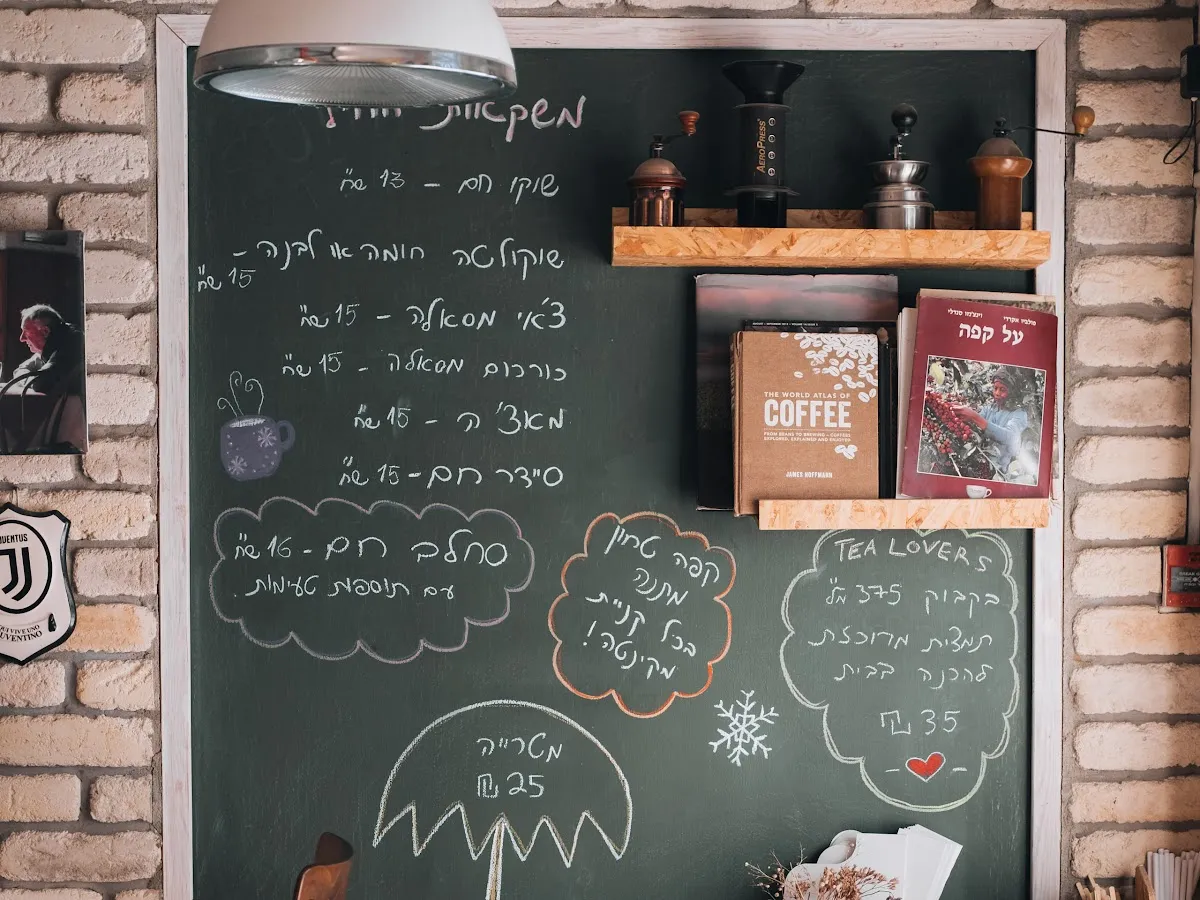 משקאות חורף
שוקו חם - 13 ש"ח
שוקולטה חומה או לבנה -
15 ש"ח
צ'אי מסאלה - 15 ש"ח
כורכום מסאלה - 15 ש"ח
מאצ' ה - 15 ש"ח
סיידר חם - 15 ש"ח
סחלב חם - 16 ש"ח
עם תוספות טעימות.
קפה טחון
מתנה
בכל קניית
מקינטה!
TEA LOVERS
בקבוק 375 מ"ל
תמצית מרוכזת
להכנה בבית
₪ 35
מטרייה
₪ 25
AEROPRESS
THE WORLD ATLAS OF
COFFEE
FROM BEANS TO BREWING - COFFEES
EXPLORED, EXPLAINED AND ENJOYED
JAMES HOFFMANN
על קפה
JUVENTUS